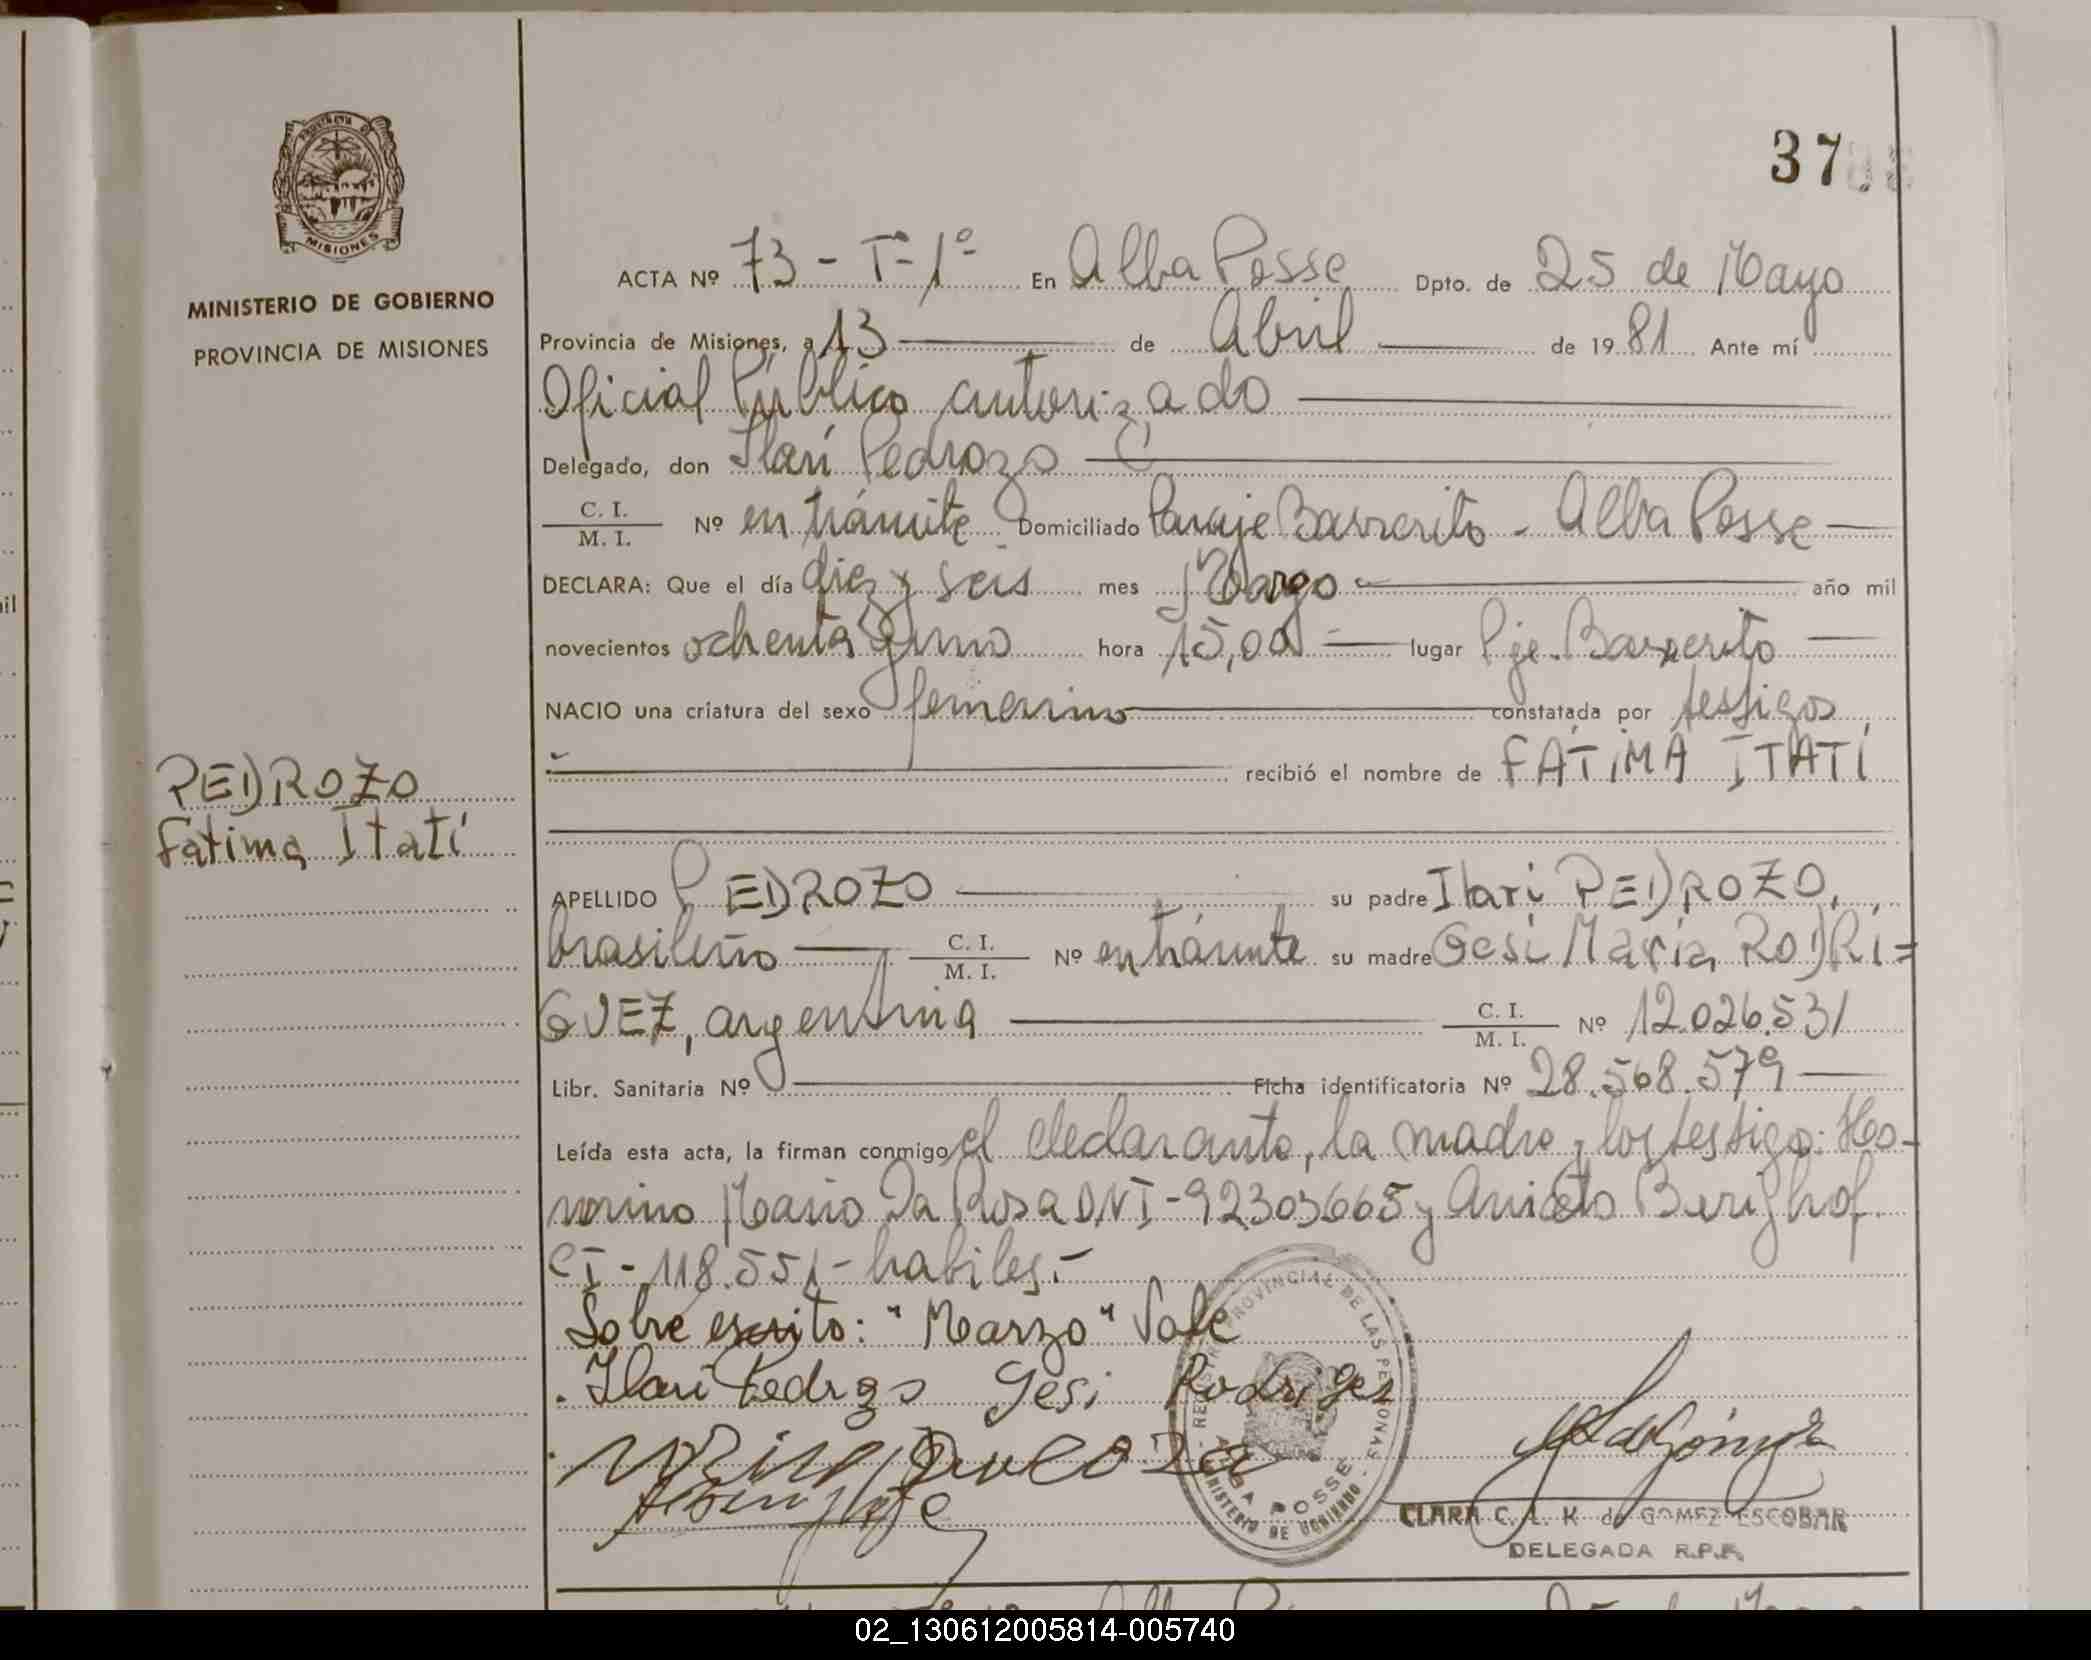 37
PROVINCIA DE
MISIONES
MINISTERIO DE GOBIERNO
PROVINCIA DE MISIONES
ACTA Nº 73 - Tº 1º - En Alba Posse Dpto. de 25 de Mayo
Provincia de Misiones, a 13 de Abril de 1981 Ante mí
Oficial Público autorizado
Delegado, don Ilari Pedrozo
C. I.
M. I. Nº en trámite Domiciliado Paraje Barrerito - Alba Posse
DECLARA: Que el día diez y seis mes Marzo año mil
novecientos ochenta y uno hora 15,00 lugar Pje. Barrerito
NACIO una criatura del sexo femenino constatada por testigos
recibió el nombre de FÁTIMA ITATÍ
PEDROZO
Fatima Itatí
APELLIDO PEDROZO su padre Ilari PEDROZO,
brasileño C. I. M. I. Nº en trámite su madre Gesi María RODRI=
GUEZ, argentina C. I. M. I. Nº 12.026.531
Libr. Sanitaria Nº Ficha identificatoria Nº 28.568.579
Leída esta acta, la firman conmigo el declarante, la madre y los testigo: Ho-
norino Mario Da Rosa DNI-92303665 y Aniceto Berighof.
CI - 118.551 - habiles.-
Sobre escrito: "Marzo" Vale
Ilari Pedrozo Gesi Rodriges
REGISTRO PROVINCIAL DE LAS PERSONAS
ALBA POSSE
MINISTERIO DE GOBIERNO
CLARA C. L. K de GOMEZ ESCOBAR
DELEGADA R.P.P.
02_130612005814-005740